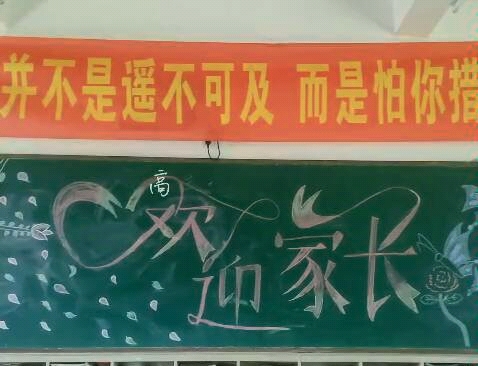 并不是遥不可及 而是怕你措
高
欢迎家长